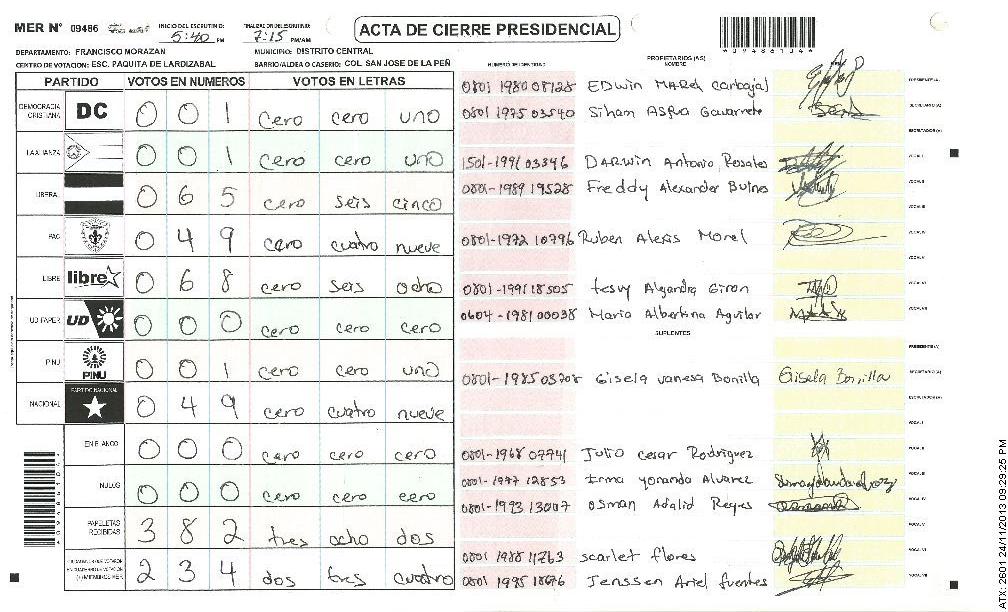 MER Nº 09486 INICIO DEL ESCRUTINIO: 5:40 PM FINALIZACION ESCRUTINIO: 7:15 PM/AM
ACTA DE CIERRE PRESIDENCIAL
DEPARTAMENTO: FRANCISCO MORAZAN MUNICIPIO: DISTRITO CENTRAL
CENTRO DE VOTACION: ESC. PAQUITA DE LARDIZABAL BARRIO/ALDEA O CASERIO: COL. SAN JOSE DE LA PEÑ
PARTIDO VOTOS EN NUMEROS VOTOS EN LETRAS
DEMOCRACIA CRISTIANA DC 0 0 1 cero cero uno
LA ALIANZA 0 0 1 cero cero uno
LIBERAL 0 6 5 cero seis cinco
PAC 0 4 9 cero cuatro nueve
LIBRE libre 0 6 8 cero seis ocho
UD FAPER UD 0 0 0 cero cero cero
PINU PINU 0 0 1 cero cero uno
NACIONAL PARTIDO NACIONAL 0 4 9 cero cuatro nueve
EN BLANCO 0 0 0 cero cero cero
NULOS 0 0 0 cero cero cero
PAPELETAS RECIBIDAS 3 8 2 tres ocho dos
(+) MIEMBROS MER 2 3 4 dos tres cuatro
NUMERO DE IDENTIDAD PROPIETARIOS (AS) NOMBRE
0801 1980 08728 EDwin MAREl Carbajal PRESIDENTE (A)
0801 1975 03540 Siham Asfua Gavarrete SECRETARIO (A)
ESCRUTADOR (A)
1501-1991 03396 DARWIN Antonio Rosales VOCAL I
0801-1989 19528 Freddy Alexander Bulnes VOCAL II
VOCAL III
0801-1972 10796 Ruben Alexis Morel VOCAL IV
VOCAL V
0801-1991 18505 Alejandra Giron VOCAL VI
0604-1981 00038 Maria Albertina Aguilar VOCAL VII
SUPLENTES
PRESIDENTE (A)
0801-1985 03708 Gisela vanesa Bonilla Gisela Bonilla SECRETARIO (A)
ESCRUTADOR (A)
VOCAL I
0801-1968 07741 Julio cesar Rodriguez VOCAL II
0801-1977 12853 Irma yolanda Alvarez VOCAL III
0801-1993 13007 osman Adalid Reyes VOCAL IV
VOCAL V
0801 1988 11763 scarlet flores VOCAL VI
0801 1985 18676 Jenssen Ariel fuentes VOCAL VII
ATX-2601 24/11/2013 09:29:25 PM